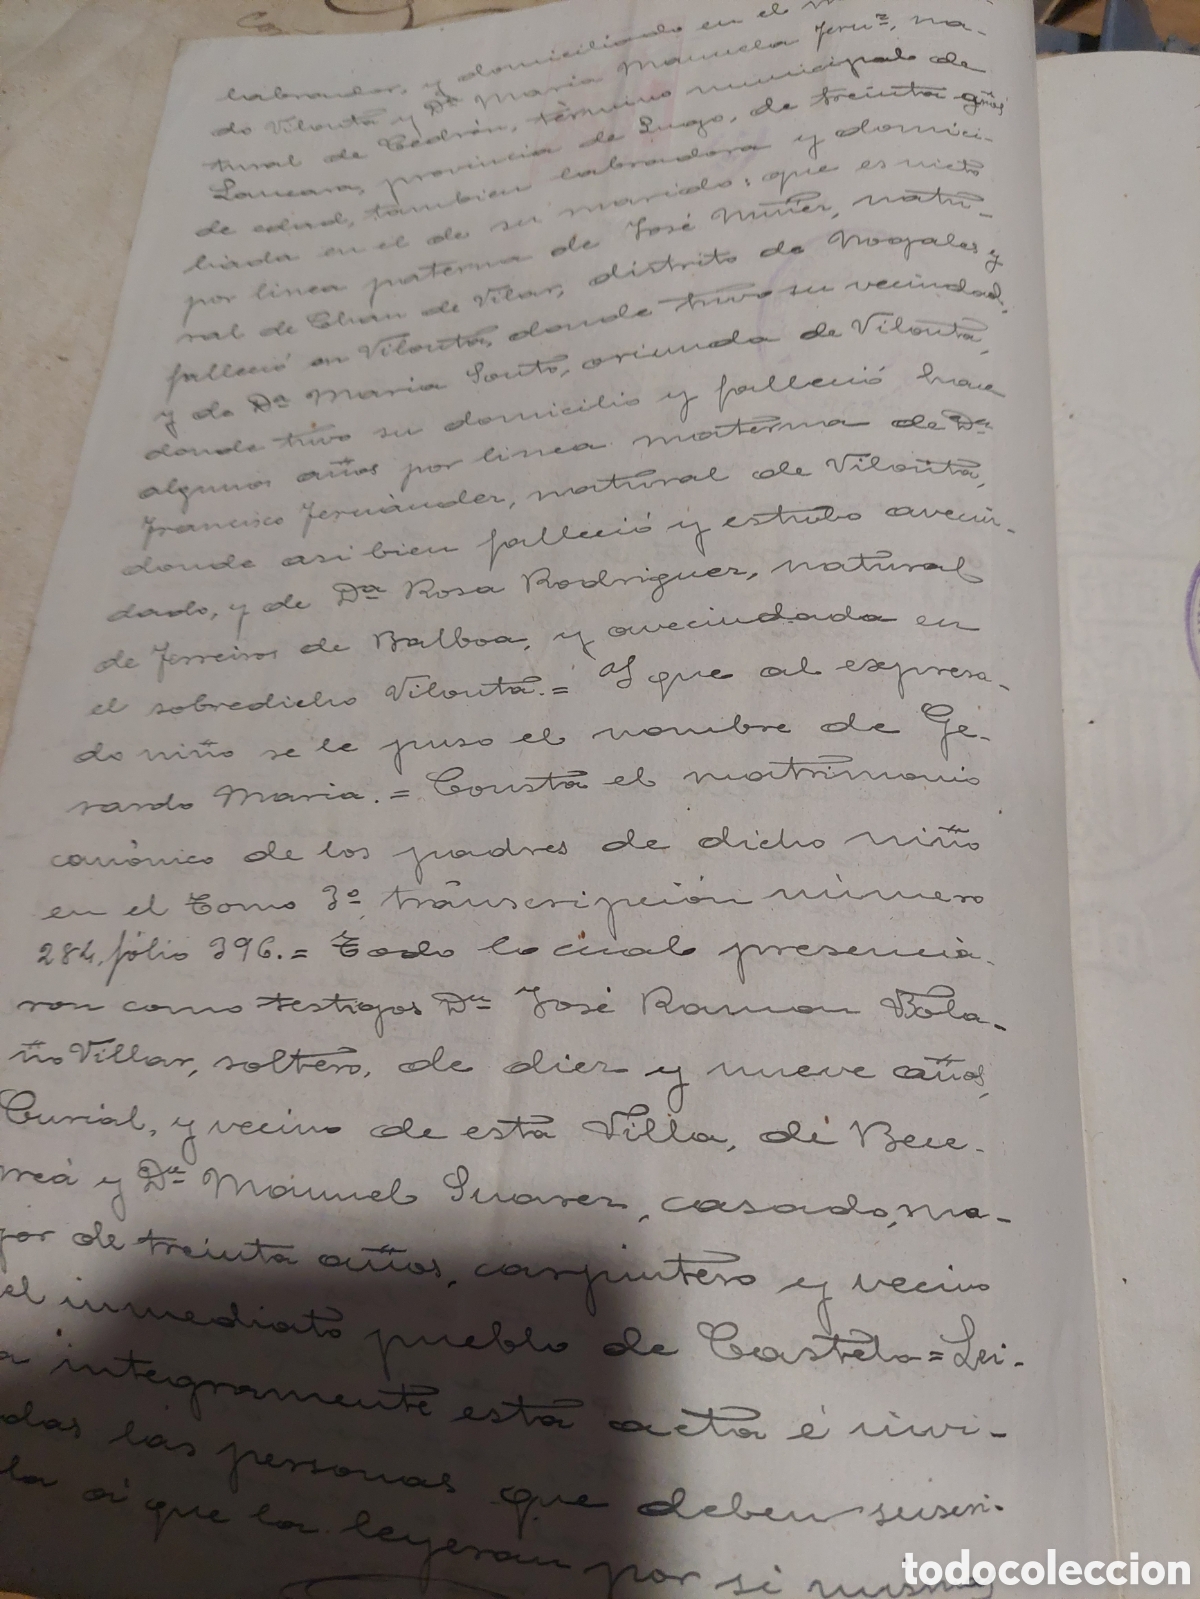 labrador, y domiciliado en el
do Vilouta y Dª Maria Manuela Fernz, na-
tural de Cedrón, término municipal de
Lancara, provincia de Lugo, de treinta años
de edad, tambien labradora y domici-
liada en el de su marido: que es nieto
por linea paterna de José Nuñez, natu-
ral de Chan de Vilar, distrito de Nogales y
falleció en Vilouta, donde tuvo su vecindad,
y de Dª Maria Souto, oriunda de Vilouta,
donde tuvo su domicilio y falleció hace
algunos años por linea materna de Dn
Francisco Fernández, natural de Vilouta,
donde asi bien falleció y estubo avecin-
dado, y de Dª Rosa Rodriguez, natural
de Ferreiros de Balboa, y avecindada en
el sobredicho Vilouta.= Y que al expresa-
do niño se le puso el nombre de Gé-
rardo Maria.= Consta el matrimonio
canónico de los padres de dicho niño
en el Tomo 3º, transcripción número
284, fólio 396.= Todo lo cual presencia-
ron como testigos Dn José Ramon Bola-
ño Villar, soltero, de diez y nueve años,
Curial, y vecino de esta Villa, de Bece-
rreá y Dn Manuel Suarez, casado, ma-
yor de treinta años, carpintero y vecino
el inmediato pueblo de Castelo= Lei-
a integramente esta acta é invi-
das las personas que deben suscri-
la á que la leyeran por si mismas
todocoleccion